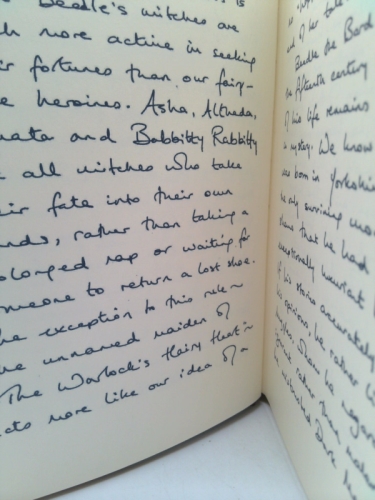 Beedle's witches are
more active in seeking
fortunes than our fairy-
heroines. Asha, Altheda,
and Babbitty Rabbitty
all witches who take
fate into their own
rather than taking a
nap or waiting for
to return a lost shoe.
exception to this rule ~
unnamed maiden of
The Warlock's Hairy Heart" ~
more like our idea of a
of her tale
Beedle the Bard
the fifteenth century
of his life remains
in mystery. We know
was born in Yorkshire
surviving
shows that he had
exceptionally luxuriant
if his stories accurately
his opinions, he rather
whom he regarded
rather than